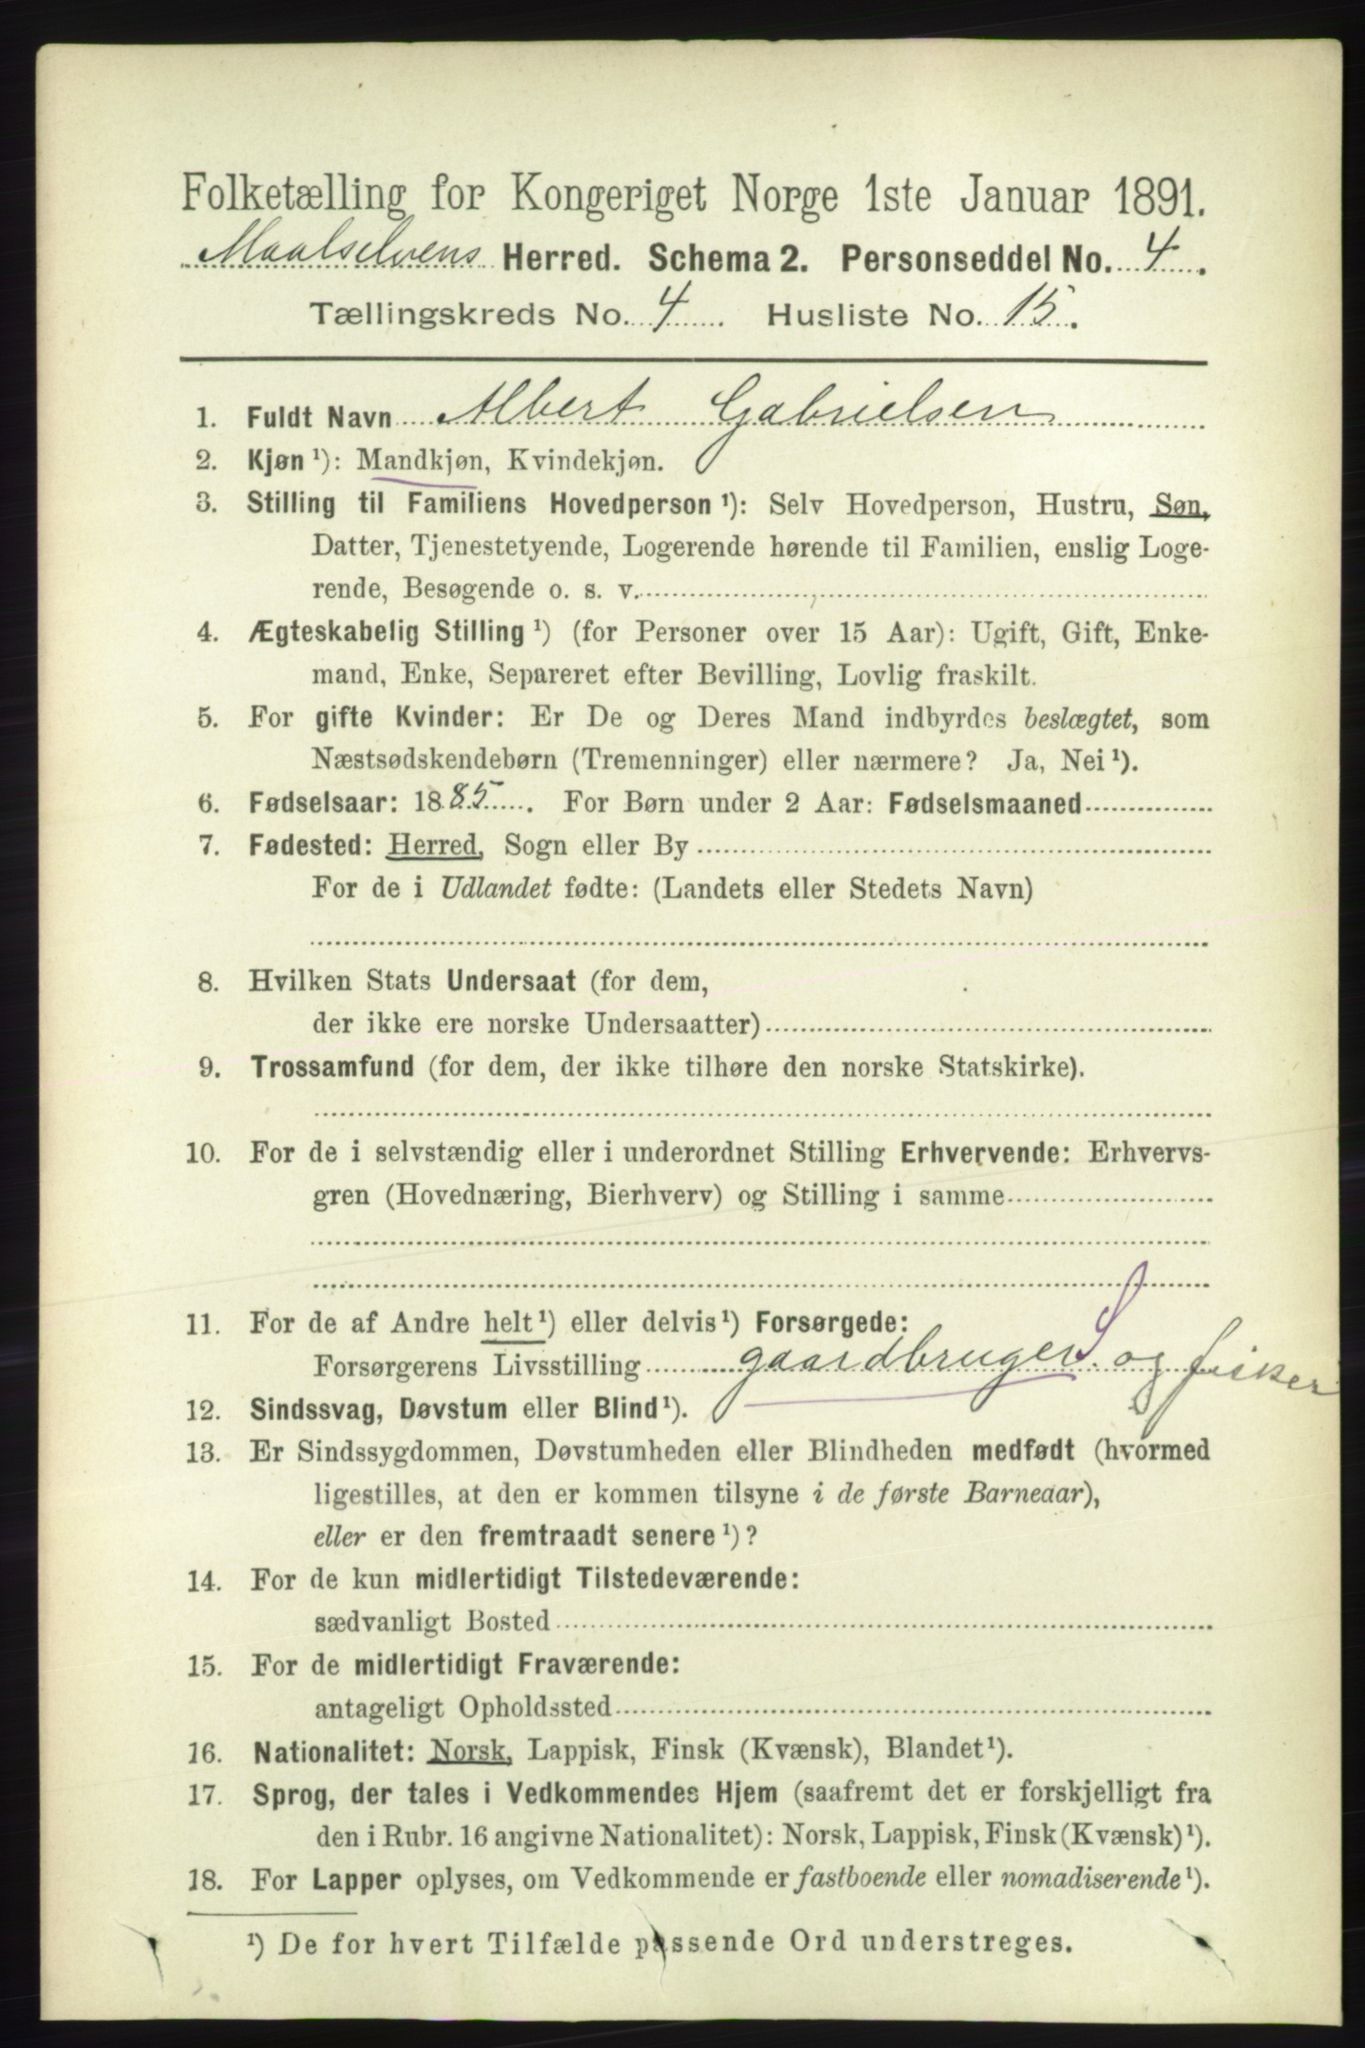 Folketælling for Kongeriget Norge 1ste Januar 1891.
Maalselvens Herred. Schema 2. Personseddel No. 4.
Tællingskreds No. 4. Husliste No. 15.
1. Fuldt Navn Albert Gabrielsen
2. Kjøn ¹): Mandkjøn, Kvindekjøn.
3. Stilling til Familiens Hovedperson ¹): Selv Hovedperson, Hustru, Søn,
Datter, Tjenestetyende, Logerende hørende til Familien, enslig Loge-
rende, Besøgende o. s. v.
4. Ægteskabelig Stilling ¹) (for Personer over 15 Aar): Ugift, Gift, Enke-
mand, Enke, Separeret efter Bevilling, Lovlig fraskilt.
5. For gifte Kvinder: Er De og Deres Mand indbyrdes beslægtet, som
Næstsødskendebørn (Tremenninger) eller nærmere? Ja, Nei ¹).
6. Fødselsaar: 1885. For Børn under 2 Aar: Fødselsmaaned
7. Fødested: Herred, Sogn eller By
For de i Udlandet fødte: (Landets eller Stedets Navn)
8. Hvilken Stats Undersaat (for dem,
der ikke ere norske Undersaatter)
9. Trossamfund (for dem, der ikke tilhøre den norske Statskirke).
10. For de i selvstændig eller i underordnet Stilling Erhvervende: Erhvervs-
gren (Hovednæring, Bierhverv) og Stilling i samme
11. For de af Andre helt ¹) eller delvis ¹) Forsørgede:
Forsørgerens Livsstilling gaardbruger S og fisker
12. Sindssvag, Døvstum eller Blind ¹).
13. Er Sindssygdommen, Døvstumheden eller Blindheden medfødt (hvormed
ligestilles, at den er kommen tilsyne i de første Barneaar),
eller er den fremtraadt senere ¹)?
14. For de kun midlertidigt Tilstedeværende:
sædvanligt Bosted
15. For de midlertidigt Fraværende:
antageligt Opholdssted
16. Nationalitet: Norsk, Lappisk, Finsk (Kvænsk), Blandet ¹).
17. Sprog, der tales i Vedkommendes Hjem (saafremt det er forskjelligt fra
den i Rubr. 16 angivne Nationalitet): Norsk, Lappisk, Finsk (Kvænsk) ¹).
18. For Lapper oplyses, om Vedkommende er fastboende eller nomadiserende ¹).
¹) De for hvert Tilfælde passende Ord understreges.